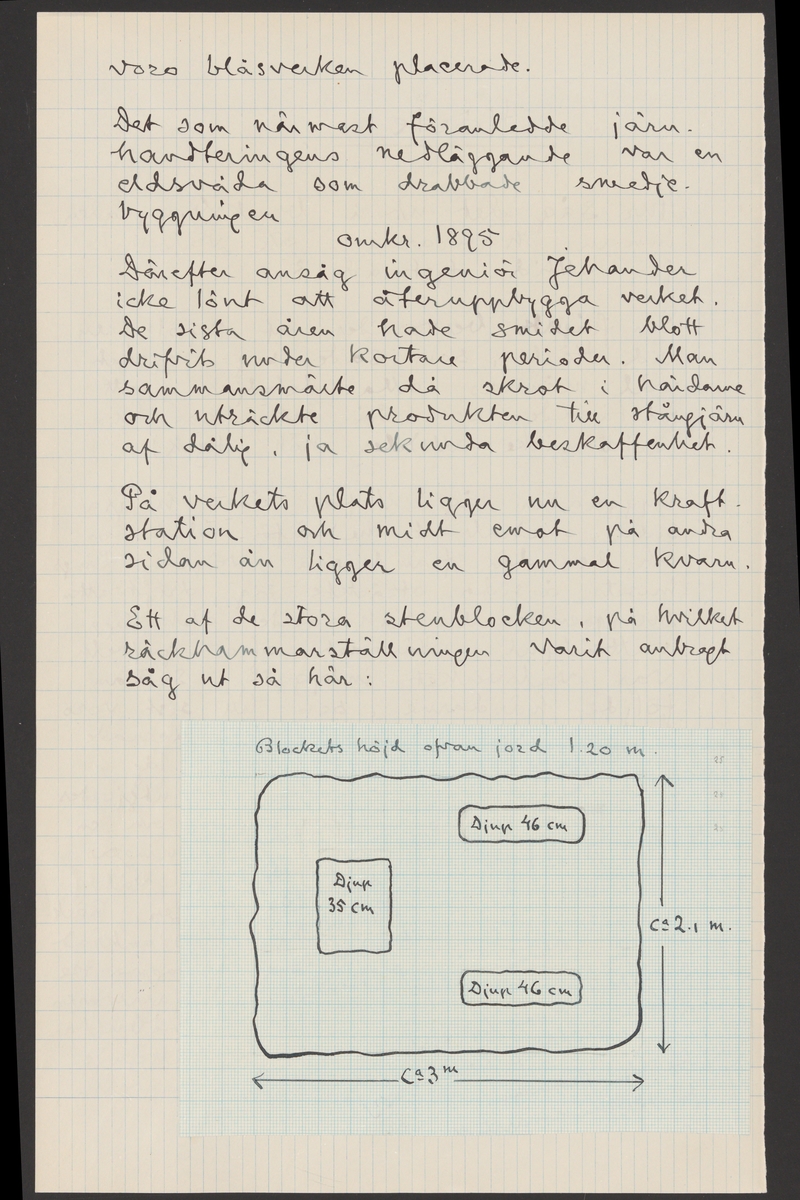 voro blåsverken placerade.
Det som närmast föranledde järn-
handteringens nedläggande var en
eldsvåda som drabbade smedje-
byggningen
omkr. 1895
Därefter ansåg ingeniör Jehander
icke lönt att återuppbygga verket.
De sista åren hade smidet blott
drifvits under kortare perioder. Man
sammansmälte då skrot i härdarne
och uträckte produkten till stångjärn
af dålig, ja sekunda beskaffenhet.
På verkets plats ligger nu en kraft-
station och midt emot på andra
sidan ån ligger en gammal kvarn.
Ett af de stora stenblocken, på hvilket
räckhammarställningen varit anbragt
såg ut så här:
Blockets höjd ofvan jord 1.20 m.
Djup 46 cm
Djup
35 cm
ca 2.1 m.
Djup 46 cm
Ca 3 m